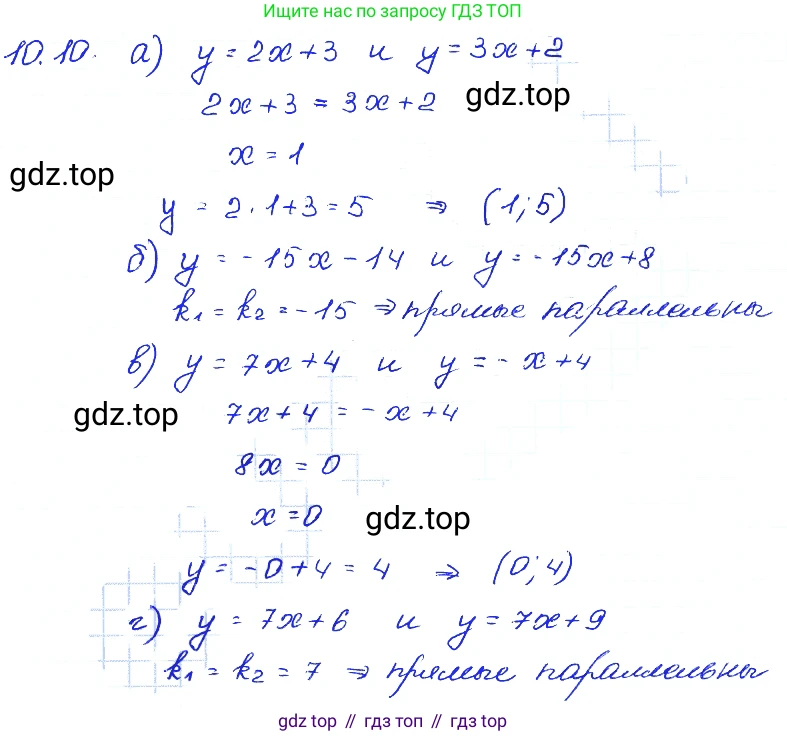 Ищите нас по запросу ГДЗ ТОП
10.10. а) y = 2x + 3 и y = 3x + 2
2x + 3 = 3x + 2
gdz.top
x = 1
gdz.top
y = 2 · 1 + 3 = 5 ⇒ (1; 5)
б) y = -15x - 14 и y = -15x + 8
k₁ = k₂ = -15 ⇒ прямые параллельны
в) y = 7x + 4 и y = -x + 4
gdz.top
7x + 4 = -x + 4
8x = 0
x = 0
gdz.top
y = -0 + 4 = 4 ⇒ (0; 4)
г) y = 7x + 6 и y = 7x + 9
k₁ = k₂ = 7 ⇒ прямые параллельны
gdz top // гдз топ // gdz top